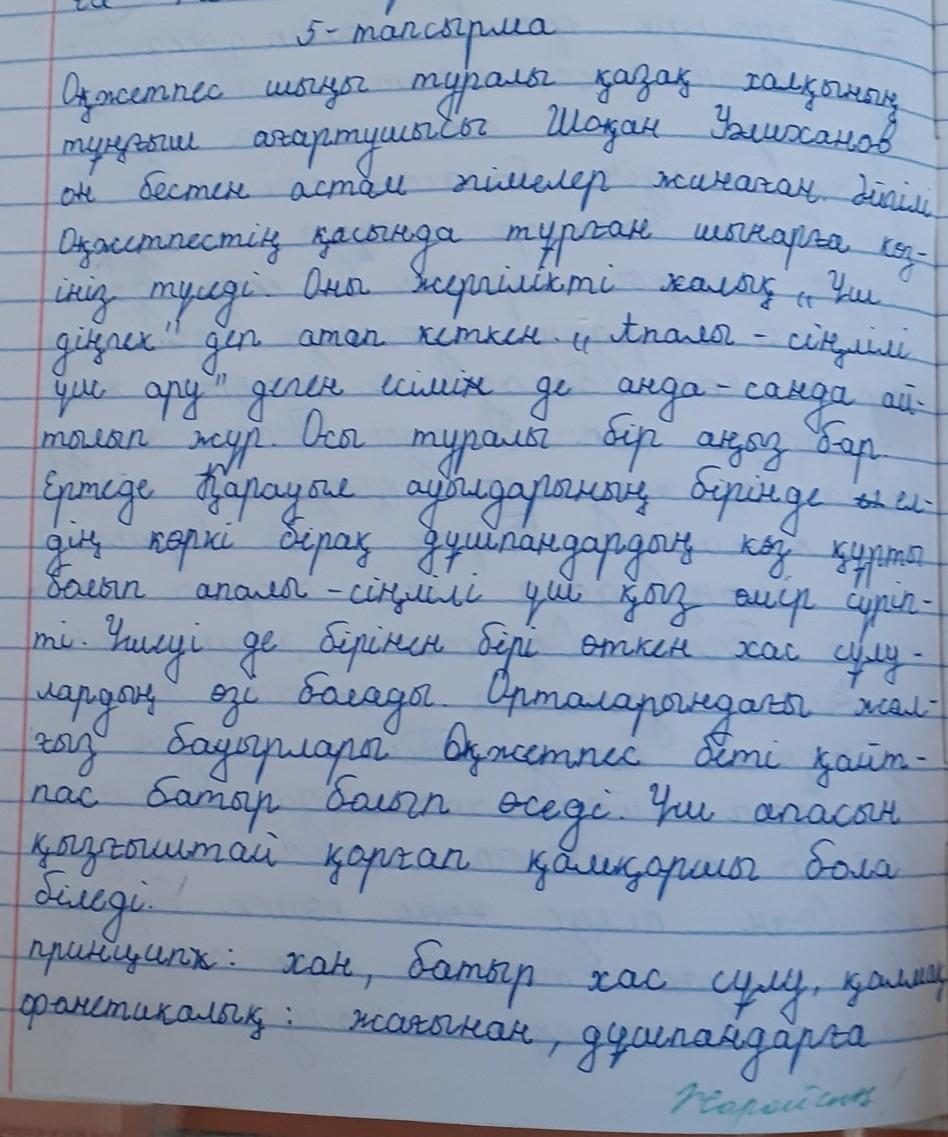 5-тапсырма
Оқжетпес шыңы туралы қазақ халқының
тұңғыш ағартушысы Шоқан Уәлиханов
он бестен астам әпімелер жинаған.
Оқжетпестің қасында тұрған шыңарға көз-
ініз түседі. Оны жергілікті халық „Үш
діңгек" деп атап кеткен. „Апалы-сіңлілі
үш ару" деген есімін де анда-санда ай-
тылып жүр. Осы туралы бір аңыз бар
Ертеде Қарауыл ауылдарының бірінде ел-
дің көркі бірақ дұшпандардың көз құрты
болып апалы-сіңлілі үш қыз өмір сүріп-
ті. Үшеуі де бірінен бірі өткен хас сұлу-
лардың өзі болады. Орталарындағы жал-
ғыз бауырлары Оқжетпес беті қайт-
пас батыр болып өседі. Үш апасын
қызғыштай қорғап қамқоршы бола
біледі.
принципж: хан, батыр хас сұлу, қалмақ
фонетикалық: жағынан, дұшпандарға
Жарайсың!